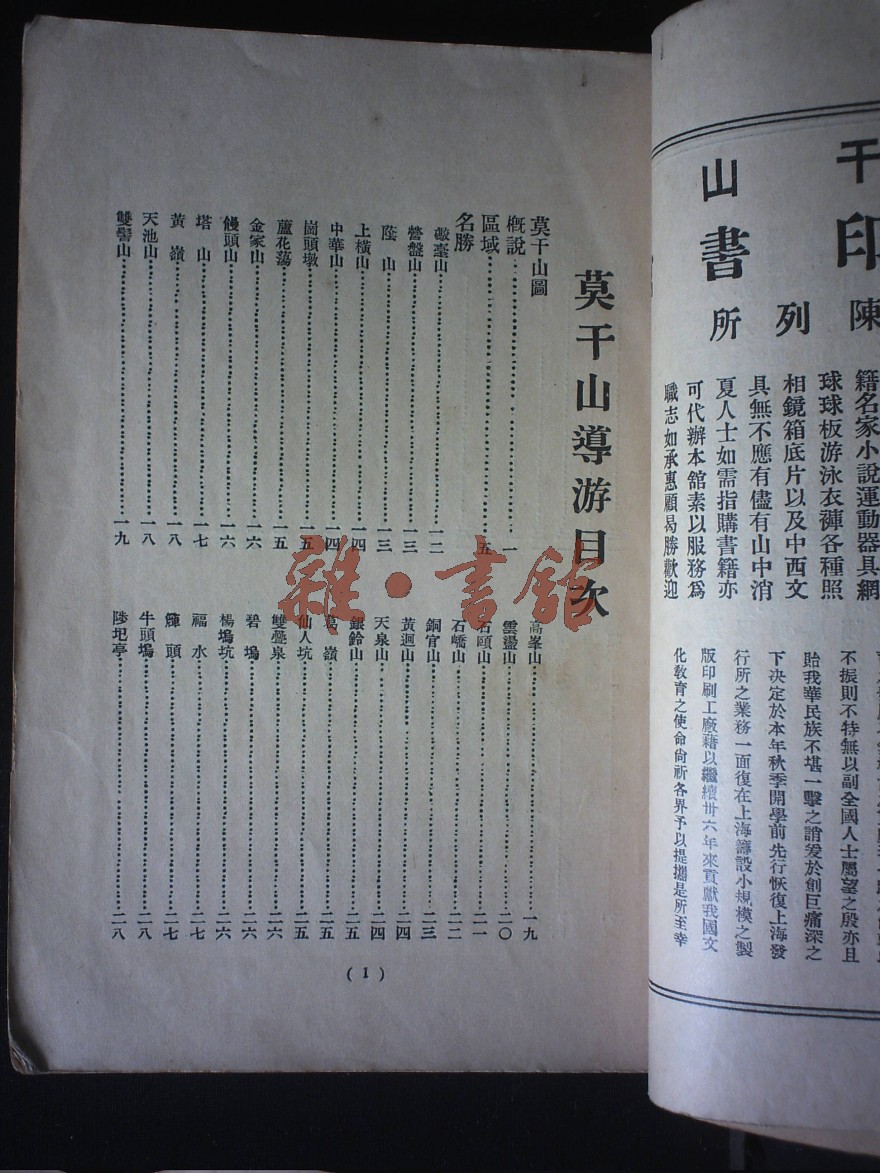 干
印
陳
山書
列
所
籍名家小說運動器具網
球球板游泳衣褲各種照
相鏡箱底片以及中西文
具無不應有儘有山中消
夏人士如需指購書籍亦
可代辦本館素以服務爲
職志如承惠顧曷勝歡迎
不振則不特無以副全國人士屬望之殷亦且
貽我華民族不堪一擊之誚爰於創巨痛深之
下決定於本年秋季開學前先行恢復上海發
行所之業務一面復在上海籌設小規模之製
版印刷工廠藉以繼續卅六年來貢獻我國文
化敎育之使命尙祈各界予以提攜是所至幸
莫干山導游目次
莫干山圖
概說 一
區域 五
名勝
山 一二
營盤山 一三
蔭山 一三
上橫山 一四
中華山 一四
崗頭墩 一五
蘆花蕩 一五
金家山 一六
饅頭山 一六
塔山 一七
黃嶺 一八
天池山 一八
雙髻山 一九
高峯山 一九
雲山 二〇
石頤山 二一
石嶠山 二二
銅官山 二三
黃迴山 二四
天泉山 二四
銀鈴山 二五
葛嶺 二五
仙人坑 二五
雙疊泉 二六
碧塢 二六
楊塢坑 二六
福水 二七
頭 二七
牛頭塢 二八
陟圯亭 二八
(1)
雜·書館